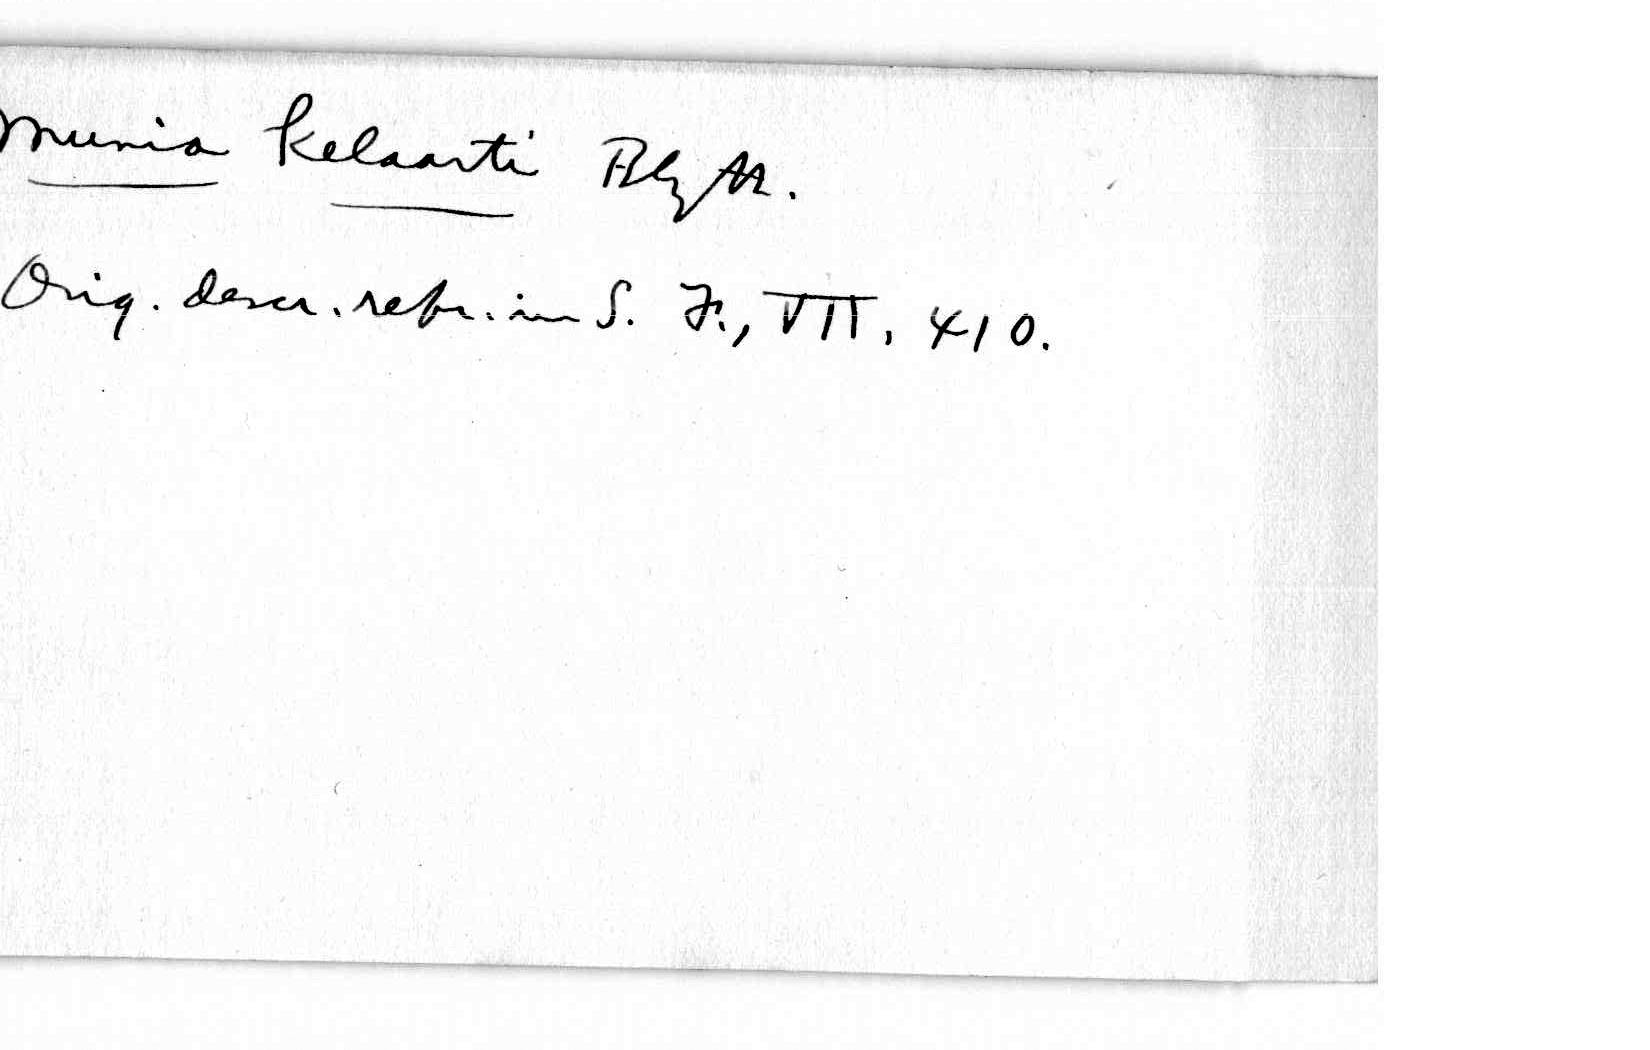 Munia kelaarti Blyth.
Orig. descr. repr. in S. F., VII, 410.